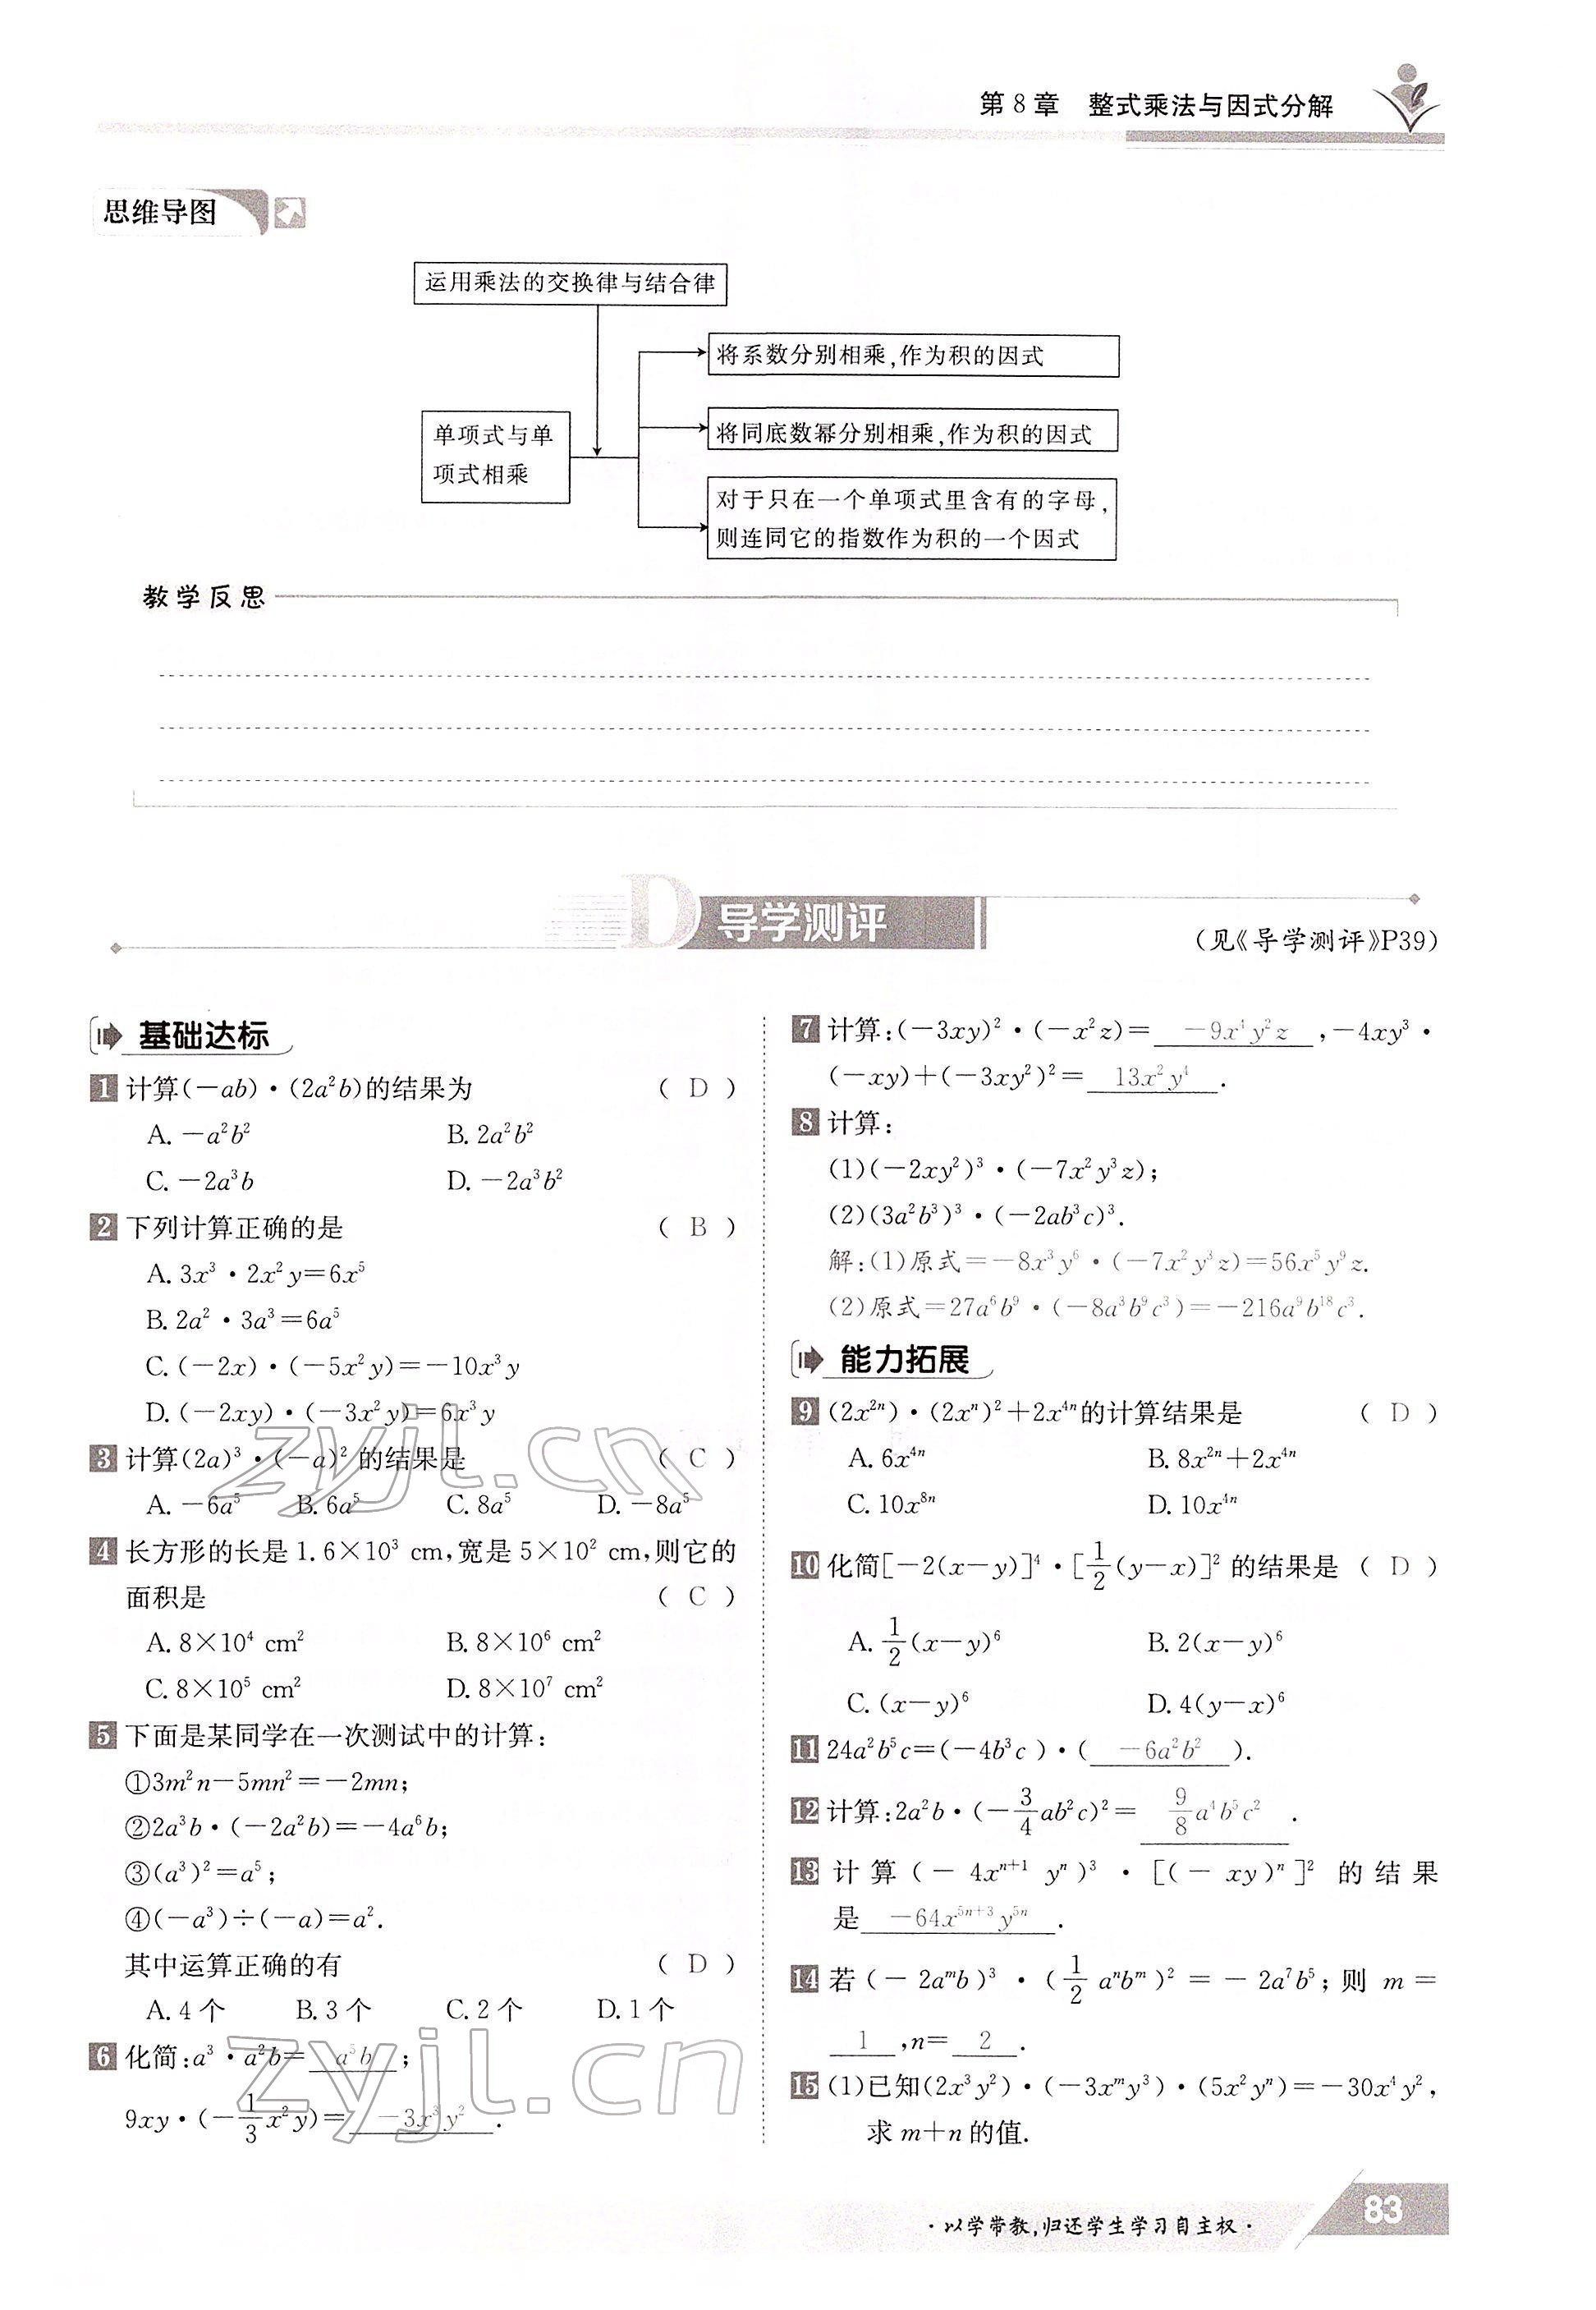 第8章 整式乘法与因式分解
思维导图
运用乘法的交换律与结合律
将系数分别相乘,作为积的因式
单项式与单
项式相乘
将同底数幂分别相乘,作为积的因式
对于只在一个单项式里含有的字母,
则连同它的指数作为积的一个因式
教学反思
D 导学测评
(见《导学测评》P39)
基础达标
1 计算(-ab)·(2a²b)的结果为 ( D )
A. -a²b² B. 2a²b²
C. -2a³b D. -2a³b²
2 下列计算正确的是 ( B )
A. 3x³·2x²y=6x⁵
B. 2a²·3a³=6a⁵
C. (-2x)·(-5x²y)=-10x³y
D. (-2xy)·(-3x²y)=6x³y
3 计算(2a)³·(-a)²的结果是 ( C )
A. -6a⁵ B. 6a⁵ C. 8a⁵ D. -8a⁵
4 长方形的长是1.6×10³ cm,宽是5×10² cm,则它的
面积是 ( C )
A. 8×10⁴ cm² B. 8×10⁶ cm²
C. 8×10⁵ cm² D. 8×10⁷ cm²
5 下面是某同学在一次测试中的计算:
①3m²n-5mn²=-2mn;
②2a³b·(-2a²b)=-4a⁶b;
③(a³)²=a⁵;
④(-a³)÷(-a)=a².
其中运算正确的有 ( D )
A. 4个 B. 3个 C. 2个 D. 1个
6 化简:a³·a²b= a⁵b ;
9xy·(-1/3x²y)= -3x³y² .
7 计算:(-3xy)²·(-x²z)= -9x⁴y²z ,-4xy³·
(-xy)+(-3xy²)²= 13x²y⁴ .
8 计算:
(1)(-2xy²)³·(-7x²y³z);
(2)(3a²b³)³·(-2ab³c)³.
解:(1)原式=-8x³y⁶·(-7x²y³z)=56x⁵y⁹z.
(2)原式=27a⁶b⁹·(-8a³b⁹c³)=-216a⁹b¹⁸c³.
能力拓展
9 (2x²ⁿ)·(2xⁿ)²+2x⁴ⁿ的计算结果是 ( D )
A. 6x⁴ⁿ B. 8x²ⁿ+2x⁴ⁿ
C. 10x⁸ⁿ D. 10x⁴ⁿ
10 化简[-2(x-y)]⁴·[1/2(y-x)]²的结果是 ( D )
A. 1/2(x-y)⁶ B. 2(x-y)⁶
C. (x-y)⁶ D. 4(y-x)⁶
11 24a²b⁵c=(-4b³c)·( -6a²b² ).
12 计算:2a²b·(-3/4ab²c)²= 9/8a⁴b⁵c² .
13 计算(-4xⁿ⁺¹yⁿ)³·[(-xy)ⁿ]²的结果
是 -64x⁵ⁿ⁺³y⁵ⁿ .
14 若(-2aᵐb)³·(1/2aⁿbᵐ)²=-2a⁷b⁵;则m=
1 ,n= 2 .
15 (1)已知(2x³y²)·(-3xᵐy³)·(5x²yⁿ)=-30x⁴y²,
求m+n的值.
·以学带教,归还学生学习自主权·
83
zyjl.cn
zyjl.cn